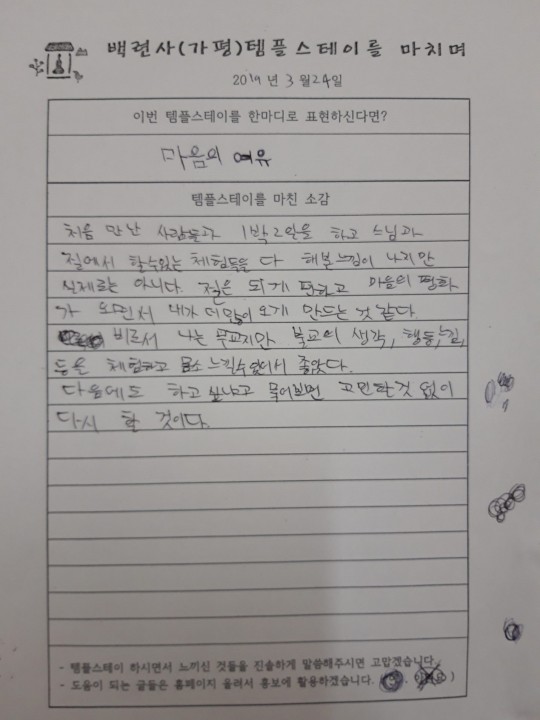 백련사(가평)템플스테이를 마치며
2019년 3월24일
이번 템플스테이를 한마디로 표현하신다면?
마음의 여유
템플스테이를 마친 소감
처음 만난 사람들과 1박2일을 하고 스님과
절에서 할수있는 체험들을 다 해본느낌이 나지만
실제로는 아니다. 절은 되게 편하고 마음의 평화
가 오면서 내가 더많이 오게 만드는 것 같다.
비로서 나는 무교지만 불교의 생각, 행동, 느낌,
등을 체험하고 몸소 느낄수있어서 좋았다.
다음에도 하고싶냐고 물어보면 고민할것 없이
다시 할 것이다.
- 템플스테이 하시면서 느끼신 것들을 진솔하게 말씀해주시면 고맙겠습니다.
- 도움이 되는 글들은 홈페이지 올려서 홍보에 활용하겠습니다.